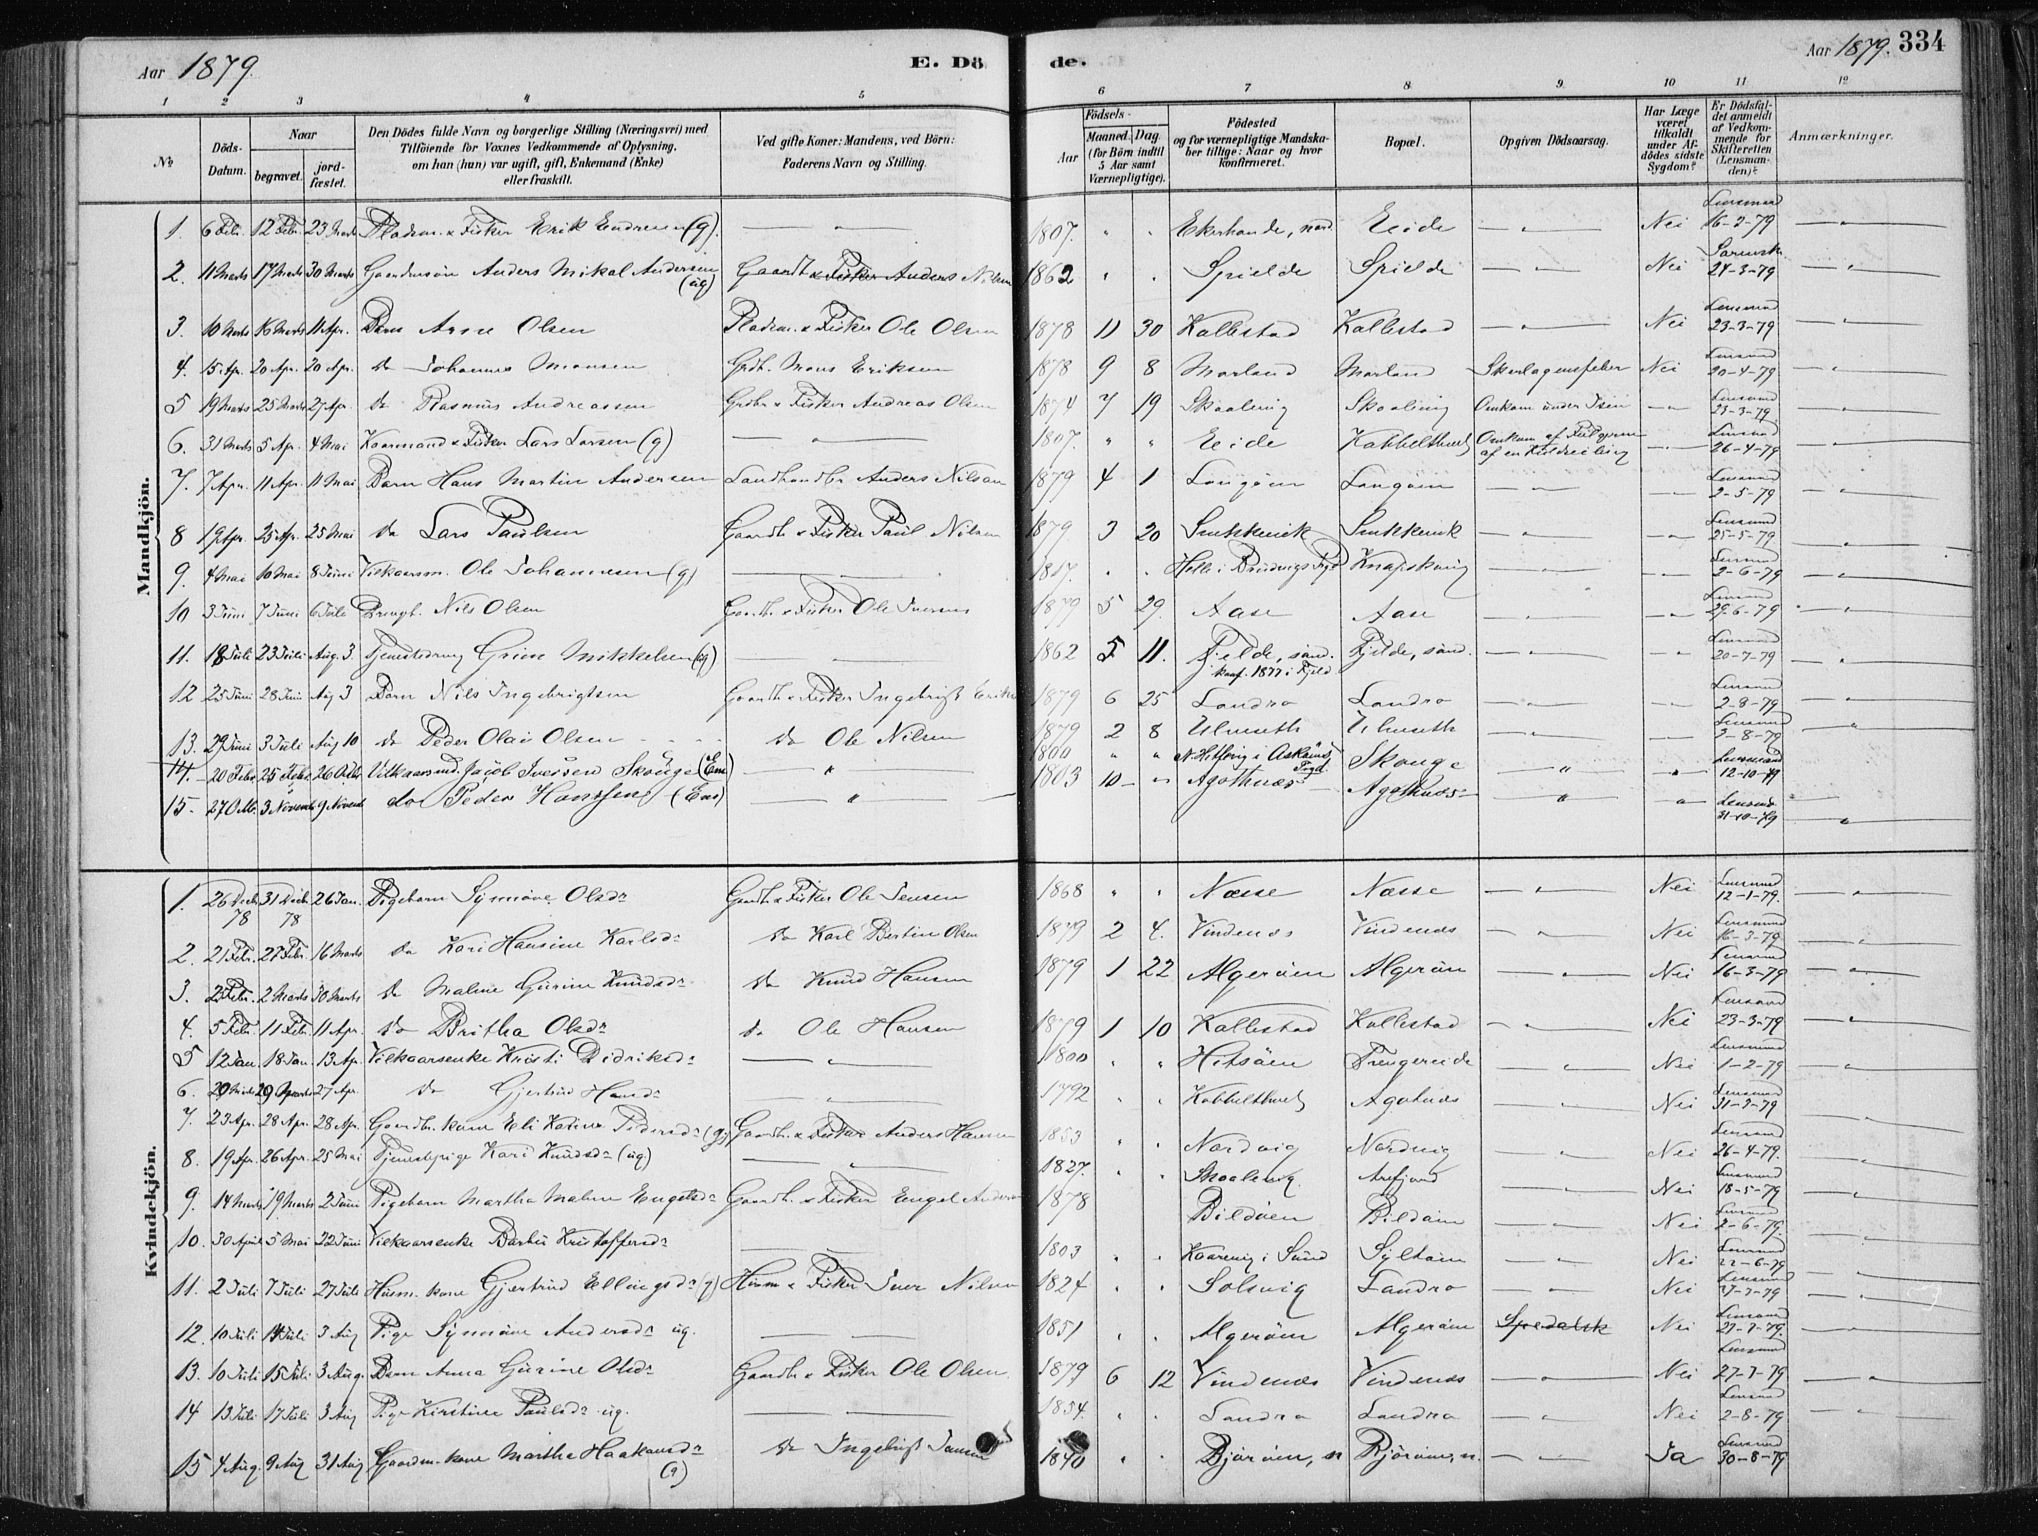 Aar 1879. E. Döde. Aar 1879. 334
1 2 3 4 5 6 7 8 9. 10 11 12
No
Döds-Datum.
Naar
begravet.
jordfæstet.
Den Dödes fulde Navn og borgerlige Stilling (Næringsvei) med
Tilföiende for Voxnes Vedkommende af Oplysning,
om han (hun) var ugift, gift, Enkemand (Enke)
eller fraskilt.
Ved gifte Koner: Mandens, ved Börn:
Faderens Navn og Stilling.
Födsels-
Aar
Maaned. Dag.
(for Börn indtil
5 Aar samt
Værnepligtige).
Födested
og for værnepligtige Mandskaber tillige: Naar og hvor
konfirmeret.
Bopæl.
Opgiven Dödsaarsag.
Har Læge
været
tilkaldt
under Afdödes sidste
Sygdom?
Er Dödsfaldet anmeldt
af Vedkommende for
Skifteretten
(Lensmanden)?
Anmærkninger.
Mandkjön.
1. 6 Febr. 12 Febr. 23 Marts Pladsm. & Fisker Erik Endresen (g). — 1807. " " Ekerhovde, nord. Eide — " — Nei Lensmand 16-2-79 — " —
2. 11 Marts 17 Marts 30 Marts Gaardmsön Anders Mikal Andersen (ug) Gaardb. & Fisker Anders Nilsen 1862 " " Spielde Spielde — " — Nei 24-3-79 — " —
3. 10 Marts 16 Marts 11 Apr. Barn Arne Olsen Pladsm. & Fisker Ole Olsen 1878 11 30 Kallestad Kallestad — " — Nei Lensmand 23-3-79 — " —
4. 15 Apr. 20 Apr. 20 Apr. do Johannes Monsen Grdb. Mons Eriksen 1878 9 8 Morland Morland Skarlagensfeber Nei Lensmand 20-4-79 — " —
5 19 Marts 25 Marts 27 Apr. do Rasmus Andreassen Grdbr & Fisker Andreas Olsen 1874 7 19 Skaalvig Skaalvig Omkom under Isen — " — Lensmand 23-3-79 — " —
6. 31 Marts 5 Apr. 4 Mai Kaarmand & Fisker Lars Larsen (g) — " — 1807. " " Eide Kabbelthvet Omkom af Fölgerne af en Kuldseiling — " — Lensmand 26-4-79 — " —
7. 7 Apr. 11 Apr. 11 Mai Barn Hans Martin Andersen Landhandlr Anders Nilsen 1879 4 1 Langöen Langöen — " — — " — Lensmand 2-5-79 — " —
8 19 Apr. 25 Apr. 25 Mai do Lars Paulsen Gaardb. & Fisker Paul Nilsen 1879 3 20 Snekkevik Snekkevik — " — — " — Lensmand 25-5-79 — " —
9. 4 Mai 10 Mai 8 Juni Vilkaarsm. Ole Johannesen (g) — 1817. " " Helle i Bruvigs Prgd Knapskoug — " — — " — Lensmand 2-6-79 — " —
10 3 Juni 7 Juni 6 Juli Drengb. Nils Olsen Gaardb. & Fisker Ole Iversen 1879 5 29. Aase Aase — " — — " — Lensmand 29-6-79 — " —
11. 18 Juli 23 Juli Aug. 3. Tjenestedreng Grim Mikkelsen (ug) — 1862 5 11. Fjelde, sönd. konf. 1877 i Fjeld Fjelde, sönd. — " — — " — Lensmand 20-7-79 — " —
12 25 Juni 28 Juni Aug 3 Barn Nils Ingebrigtsen Gaardb. & Fisker Ingebrigt Eriks 1879 6 25 Landro Landro — " — — " — Lensmand 2-8-79 — " —
13. 29 Juni 3 Juli Aug 10 do Peder Olai Olsen do Ole Nilsen 1879 2 8 Ulveseth Ulveseth — " — — " — Lensmand 2-8-79 — " —
14. 20 Febr. 25 Febr. 26 Octbr. Vilkaarsmd. Jacob Iversen Skouge (Em) — " — 1800 " " N. Hetlevig i Askøens Prgd. Skouge — " — " Lensmand 12-10-79
15. 27 Octb. 3 Novemb 9 Novemb do Peder Hanssen (Em) — " — 1803 10 — " Agothnæs Agothnæs — " — — " — Lensmd. 31-10-79 — " —
Kvindekjön.
1. 26 Decb. 78 31 Decb. 78 26 Jan. Pigebarn Synnöve Olsdr. Gaardb. & Fisker Ole Jensen 1868 " " Næsse Næsse — " — Nei Lensmand 12-1-79. — " —
2. 21 Febr. 27 Febr. 16 Marts do Kari Hansine Karlsdr. do Karl Bertin Olsen 1879 2 4. Vindenæs Vindenæs — " — Nei Lensmand 16-3-79 — " —
3. 25 Febr. 2 Marts 30 Marts do Malene Gurine Knudsdr. do Knud Hansen 1879 1 22 Algeröen Algeröen — " — Nei Lensmand 16-3-79 — " —
4. 5 Febr. 11 Febr. 11 Apr. do Britha Olsdr. do Ole Hansen 1879 1 10 Kallestad Kallestad — " — Nei Lensmand 23-3-79 — " —
5 12 Jan 18 Jan. 13 Apr. Vilkaarsenke Kristi Didriksdr. — " — 1800 " " Hitsöen Trengereide — " — Nei Lensmand 1-2-79 — " —
6. 20 Marts 29 Marts 27 Apr. do Gjertrud Hansdr. — " — 1792 " " Kabbelthvet Agotnæs — " — Nei Lensmand 31-3-79 — " —
7. 23 Apr. 28 Apr. 28 Apr. Gaardb. kone Eli Karine Pedersdr. (g) Gaardb. & Fisker Anders Hansen 1853 " " Nordvig Nordvig — " — Nei Lensmand 26-4-79. — " —
8. 19 Apr. 26 Apr. 25 Mai Tjenestepige Kari Knudsdr. (ug) — " — 1827. " " Skaalvig Arefjord — " — Nei Lensmand 18-5-79 — " —
9. 14 Marts 19 Marts 2 Juni Pigebarn Martha Malene Engelsdr. Gaardb. & Fisker Engel Andersen 1878 Bildöen Bildöen — " — Nei Lensmand 2-6-79. — " —
10. 30 April 5 Mai 22 Juni Vilkaarsenke Barbro Kristoffersdr. — 1803 " " Kaarevig i Sund Syltöen — " — Nei Lensmand 22-6-79 — " —
11. 2 Juli 7 Juli 27 Juli Husm. kone Gjertrud Ellingsdr. (g) Husm & Fisker Iver Nilsen 1824 " " Solsvig Landro — " — Nei Lensmand 27-7-79 — " —
12. 10 Juli 14 Juli 3 Aug Pige Synnöve Andersdr. ug. — 1851 " " Algeröen Algeröen Spedalsk Nei Lensmand 27-7-79. — " —
13. 10 Juli 15 Juli 3 Aug. Barn Anna Gurine Olsdr. Gaardb. & Fisker Ole Olsen. 1879 6 12 Vindenæs Vindenæs — " — Nei Lensmand 27-7-79 — " —
14 13 Juli 17 Juli 3 Aug Pige Kirstine Paulsdr. ug. — 1854. " " Landro Landro — " — Nei Lensmand 2-8-79 — " —
15 4 Aug. 9 Aug 31 Aug Gaardm. kone Martha Haakonsdr. (g) do Ingebrigt Jansen 1840 " " Björöen, n Björöen, n. — " — Ja Lensmand 30-8-79 — " —